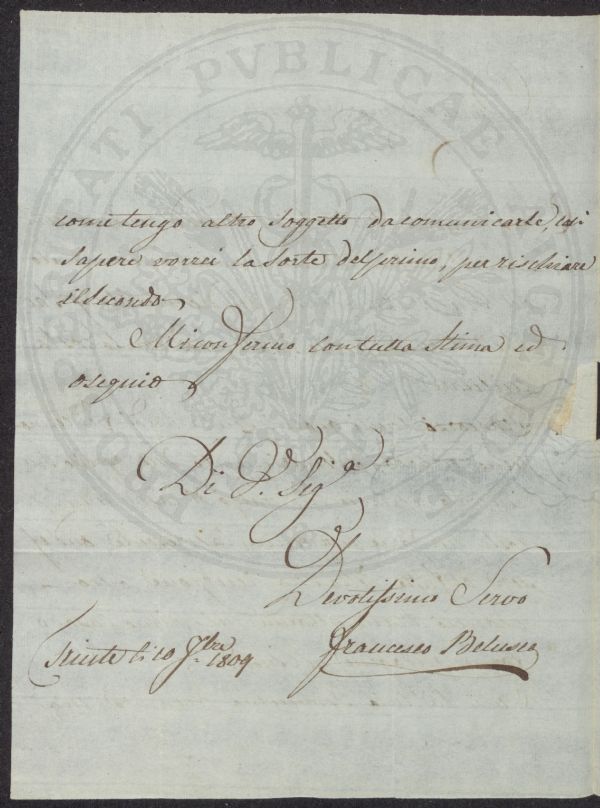 come tengo altro soggetto da comunicarle, così
sapere vorrei la sorte del primo, per rischiare
il secondo.
Mi confermo con tutta stima ed
osequio
Di V. Sig.a
Devotissimo Servo
Francesco
li 10 9bre 1809
PVBLICAE